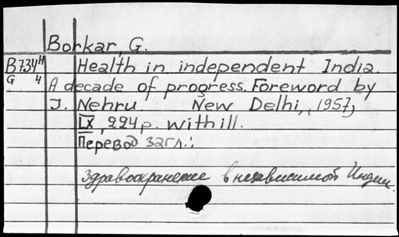 Borkar, G.
B734H Health in independent India.
G 4 A decade of progress. Foreword by
J. Nehru. New Delhi, (1957)
IX, 224 p. with ill.
Перевод загл.:
Здравоохранение в независимой Индии.